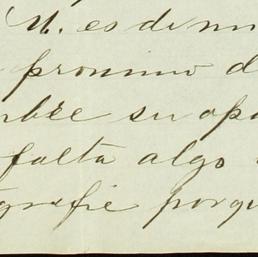 U. es de mi
pronimo d
bée su apo
falta algo
grafie porqu